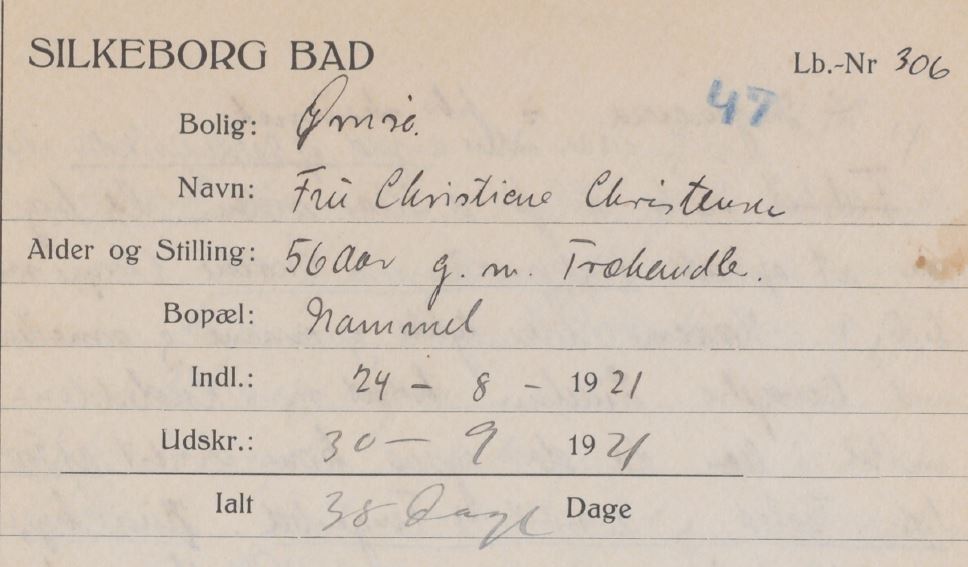 SILKEBORG BAD Lb.-Nr 306
47
Bolig: Ørnsø.
Navn: Fru Christiane Christensen
Alder og Stilling: 56 Aar g. m. Træhandle.
Bopæl: Hammel
Indl.: 24 - 8 - 1921
Udskr.: 30 - 9 1921
Ialt 38 Dage Dage